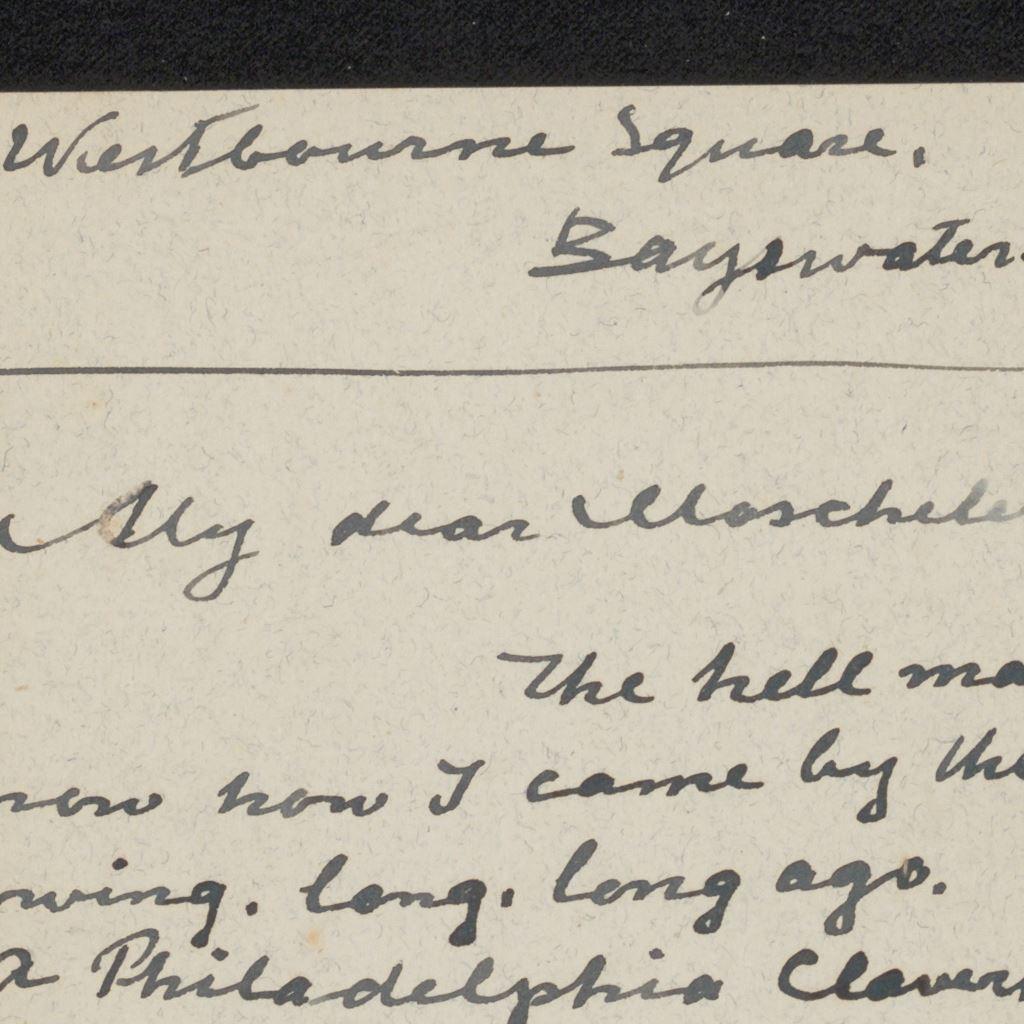 Westbourne Square,
Bayswater.
My dear Moschele
The hell ma
now how I came by the
wing. long, long ago.
a Philadelphia Claver